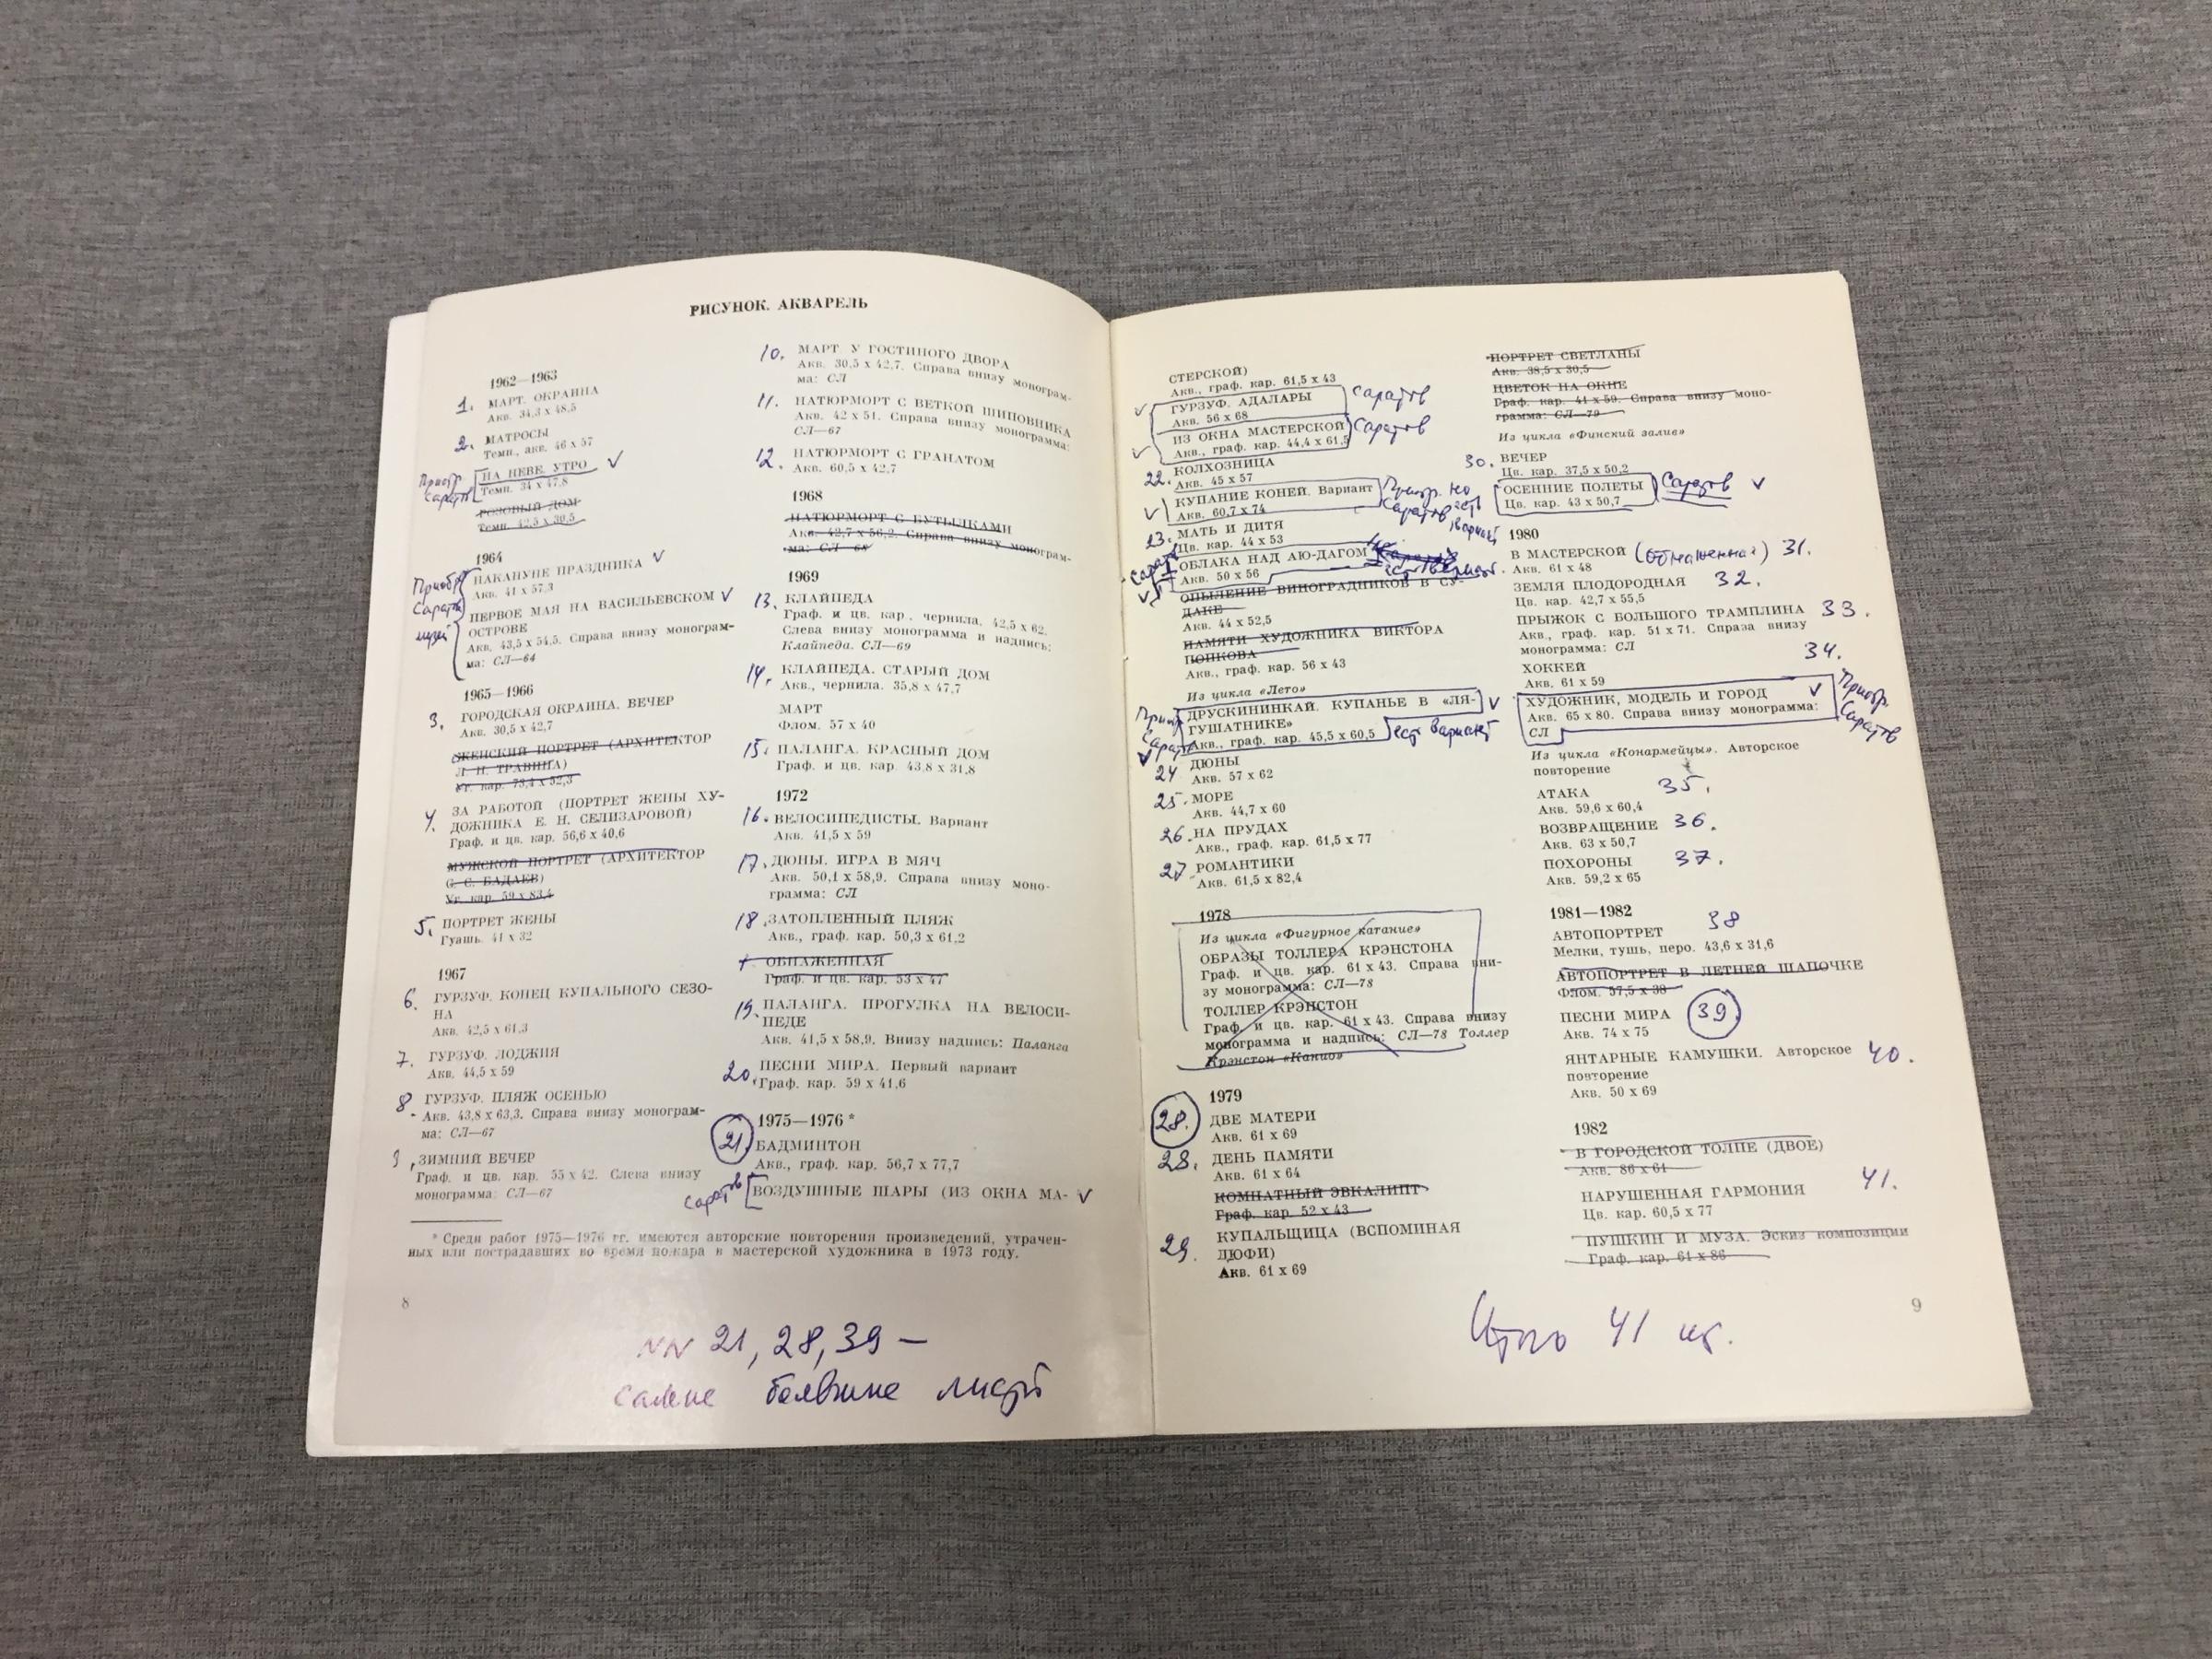 РИСУНОК. АКВАРЕЛЬ
1962—1963
1. МАРТ. ОКРАИНА
Акв. 34,3 x 48,5
2. МАТРОСЫ
Темп., акв. 46 x 57
Приобр. НА НЕВЕ. УТРО
Саратов Темп. 34 x 47,8
РОЗОВЫЙ ДОМ
Темп. 42,5 x 30,5
1964
Приобр. НАКАНУНЕ ПРАЗДНИКА
Акв. 41 x 57,3
Саратов ПЕРВОЕ МАЯ НА ВАСИЛЬЕВСКОМ
музей ОСТРОВЕ
Акв. 43,5 x 54,5. Справа внизу монограм-
ма: СЛ—64
1965—1966
3. ГОРОДСКАЯ ОКРАИНА. ВЕЧЕР
Акв. 30,5 x 42,7
ЖЕНСКИЙ ПОРТРЕТ (АРХИТЕКТОР
Л. Н. ТРАВИНА)
Уг. кар. 73,4 x 52,3
4. ЗА РАБОТОЙ (ПОРТРЕТ ЖЕНЫ ХУ-
ДОЖНИКА Е. Н. СЕЛИЗАРОВОЙ)
Граф. и цв. кар. 56,6 x 40,6
МУЖСКОЙ ПОРТРЕТ (АРХИТЕКТОР
С. С. БАДАЕВ)
Уг. кар. 59 x 83,4
5. ПОРТРЕТ ЖЕНЫ
Гуашь. 41 x 32
1967
6. ГУРЗУФ. КОНЕЦ КУПАЛЬНОГО СЕЗО-
НА
Акв. 42,5 x 61,3
7. ГУРЗУФ. ЛОДЖИЯ
Акв. 44,5 x 59
8. ГУРЗУФ. ПЛЯЖ ОСЕНЬЮ
Акв. 43,8 x 63,3. Справа внизу монограм-
ма: СЛ—67
9. ЗИМНИЙ ВЕЧЕР
Граф. и цв. кар. 55 x 42. Слева внизу
монограмма: СЛ—67
10. МАРТ У ГОСТИНОГО ДВОРА
Акв. 30,5 x 42,7. Справа внизу монограм-
ма: СЛ
11. НАТЮРМОРТ С ВЕТКОЙ ШИПОВНИКА
Акв. 42 x 51. Справа внизу монограмма:
СЛ—67
12. НАТЮРМОРТ С ГРАНАТОМ
Акв. 60,5 x 42,7
1968
НАТЮРМОРТ С БУТЫЛКАМИ
Акв. 42,7 x 56,2. Справа внизу монограм-
ма: СЛ—68
1969
13. КЛАЙПЕДА
Граф. и цв. кар., чернила. 42,5 x 62.
Слева внизу монограмма и надпись:
Клайпеда. СЛ—69
14. КЛАЙПЕДА. СТАРЫЙ ДОМ
Акв., чернила. 35,8 x 47,7
МАРТ
Флом. 57 x 40
15. ПАЛАНГА. КРАСНЫЙ ДОМ
Граф. и цв. кар. 43,8 x 31,8
1972
16. ВЕЛОСИПЕДИСТЫ. Вариант
Акв. 41,5 x 59
17. ДЮНЫ. ИГРА В МЯЧ
Акв. 50,1 x 58,9. Справа внизу моно-
грамма: СЛ
18. ЗАТОПЛЕННЫЙ ПЛЯЖ
Акв., граф. кар. 50,3 x 61,2
ОБНАЖЕННАЯ
Граф. и цв. кар. 53 x 47
19. ПАЛАНГА. ПРОГУЛКА НА ВЕЛОСИ-
ПЕДЕ
Акв. 41,5 x 58,9. Внизу надпись: Паланга
20. ПЕСНИ МИРА. Первый вариант
Граф. кар. 59 x 41,6
1975—1976 *
21. БАДМИНТОН
Акв., граф. кар. 56,7 x 77,7
Саратов ВОЗДУШНЫЕ ШАРЫ (ИЗ ОКНА МА-
* Среди работ 1975—1976 гг. имеются авторские повторения произведений, утрачен-
ных или пострадавших во время пожара в мастерской художника в 1973 году.
8
NN 21, 28, 39 —
самые большие листы
СТЕРСКОЙ)
Акв., граф. кар. 61,5 x 43
ГУРЗУФ. АДАЛАРЫ Саратов
Акв. 56 x 68
ИЗ ОКНА МАСТЕРСКОЙ Саратов
Акв., граф. кар. 44,4 x 61,5
22. КОЛХОЗНИЦА
Акв. 45 x 57
КУПАНИЕ КОНЕЙ. Вариант Приобр. но
Акв. 60,7 x 74 Саратов есть
вариант
23. МАТЬ И ДИТЯ
Цв. кар. 44 x 53
Сарат ОБЛАКА НАД АЮ-ДАГОМ
Акв. 50 x 56 есть вариант
ОПЫЛЕНИЕ ВИНОГРАДНИКОВ В СУ-
ДАКЕ
Акв. 44 x 52,5
ПАМЯТИ ХУДОЖНИКА ВИКТОРА
ПОПКОВА
Акв., граф. кар. 56 x 43
Из цикла «Лето»
Приобр ДРУСКИНИНКАЙ. КУПАНЬЕ В «ЛЯ-
Сарат ГУШАТНИКЕ»
Акв., граф. кар. 45,5 x 60,5 есть вариант
24 ДЮНЫ
Акв. 57 x 62
25. МОРЕ
Акв. 44,7 x 60
26. НА ПРУДАХ
Акв., граф. кар. 61,5 x 77
27. РОМАНТИКИ
Акв. 61,5 x 82,4
1978
Из цикла «Фигурное катание»
ОБРАЗЫ ТОЛЛЕРА КРЭНСТОНА
Граф. и цв. кар. 61 x 43. Справа вни-
зу монограмма: СЛ—78
ТОЛЛЕР КРЭНСТОН
Граф. и цв. кар. 61 x 43. Справа внизу
монограмма и надпись: СЛ—78 Толлер
Крэнстон «Канио»
1979
28. ДВЕ МАТЕРИ
Акв. 61 x 69
28. ДЕНЬ ПАМЯТИ
Акв. 61 x 64
КОМНАТНЫЙ ЭВКАЛИПТ
Граф. кар. 52 x 43
29. КУПАЛЬЩИЦА (ВСПОМИНАЯ
ДЮФИ)
Акв. 61 x 69
ПОРТРЕТ СВЕТЛАНЫ
Акв. 38,5 x 30,5
ЦВЕТОК НА ОКНЕ
Граф. кар. 41 x 59. Справа внизу моно-
грамма: СЛ—79
Из цикла «Финский залив»
30. ВЕЧЕР
Цв. кар. 37,5 x 50,2
ОСЕННИЕ ПОЛЕТЫ Саратов
Цв. кар. 43 x 50,7
1980
В МАСТЕРСКОЙ (Обнаженная) 31.
Акв. 61 x 48
ЗЕМЛЯ ПЛОДОРОДНАЯ 32.
Цв. кар. 42,7 x 55,5
ПРЫЖОК С БОЛЬШОГО ТРАМПЛИНА 33.
Акв., граф. кар. 51 x 71. Справа внизу
монограмма: СЛ
ХОККЕЙ 34.
Акв. 61 x 59
ХУДОЖНИК, МОДЕЛЬ И ГОРОД Приобр.
Акв. 65 x 80. Справа внизу монограмма: Саратов
СЛ
Из цикла «Конармейцы». Авторское
повторение
АТАКА 35.
Акв. 59,6 x 60,4
ВОЗВРАЩЕНИЕ 36.
Акв. 63 x 50,7
ПОХОРОНЫ 37.
Акв. 59,2 x 65
1981—1982
АВТОПОРТРЕТ 38
Мелки, тушь, перо. 43,6 x 31,6
АВТОПОРТРЕТ В ЛЕТНЕЙ ШАПОЧКЕ
Флом. 57,5 x 38
ПЕСНИ МИРА 39.
Акв. 74 x 75
ЯНТАРНЫЕ КАМУШКИ. Авторское 40.
повторение
Акв. 50 x 69
1982
В ГОРОДСКОЙ ТОЛПЕ (ДВОЕ)
Акв. 86 x 61
НАРУШЕННАЯ ГАРМОНИЯ 41.
Цв. кар. 60,5 x 77
ПУШКИН И МУЗА. Эскиз композиции
Граф. кар. 61 x 86
9
Итого 41 шт.